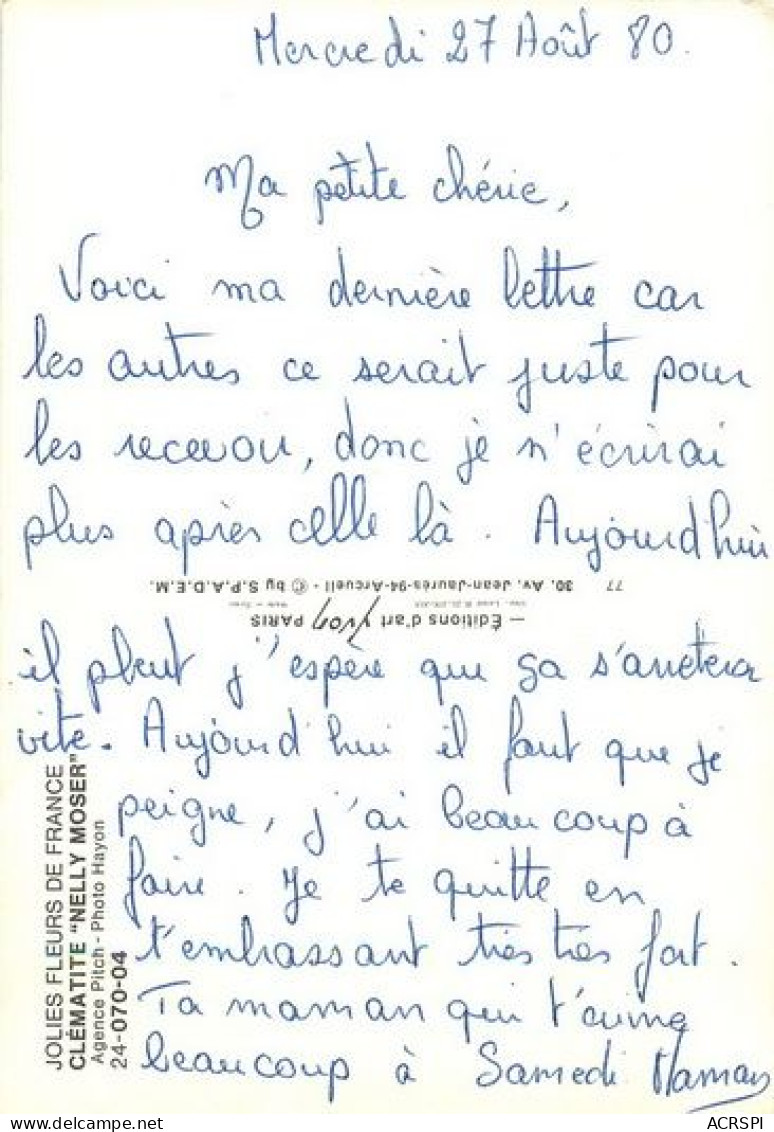 Mercredi 27 Août 80.
Ma petite chérie,
Voici ma dernière lettre car
les autres ce serait juste pour
les recevoir, donc je n'écrirai
plus après celle là. Aujourd'hui
77 30. Av. Jean-Jaurès-94-Arcueil - © by S.P.A.D.E.M.
— Éditions d'art Yvon PARIS
il pleut j'espère que ça s'arretera
vite. Aujourd'hui il faut que je
peigne, j'ai beaucoup à
faire. Je te quitte en
t'embrassant très très fort.
Ta maman qui t'aime
beaucoup à Samedi Maman
JOLIES FLEURS DE FRANCE
CLÉMATITE "NELLY MOSER"
Agence Pitch - Photo Hayon
24-070-04
ACRSPI